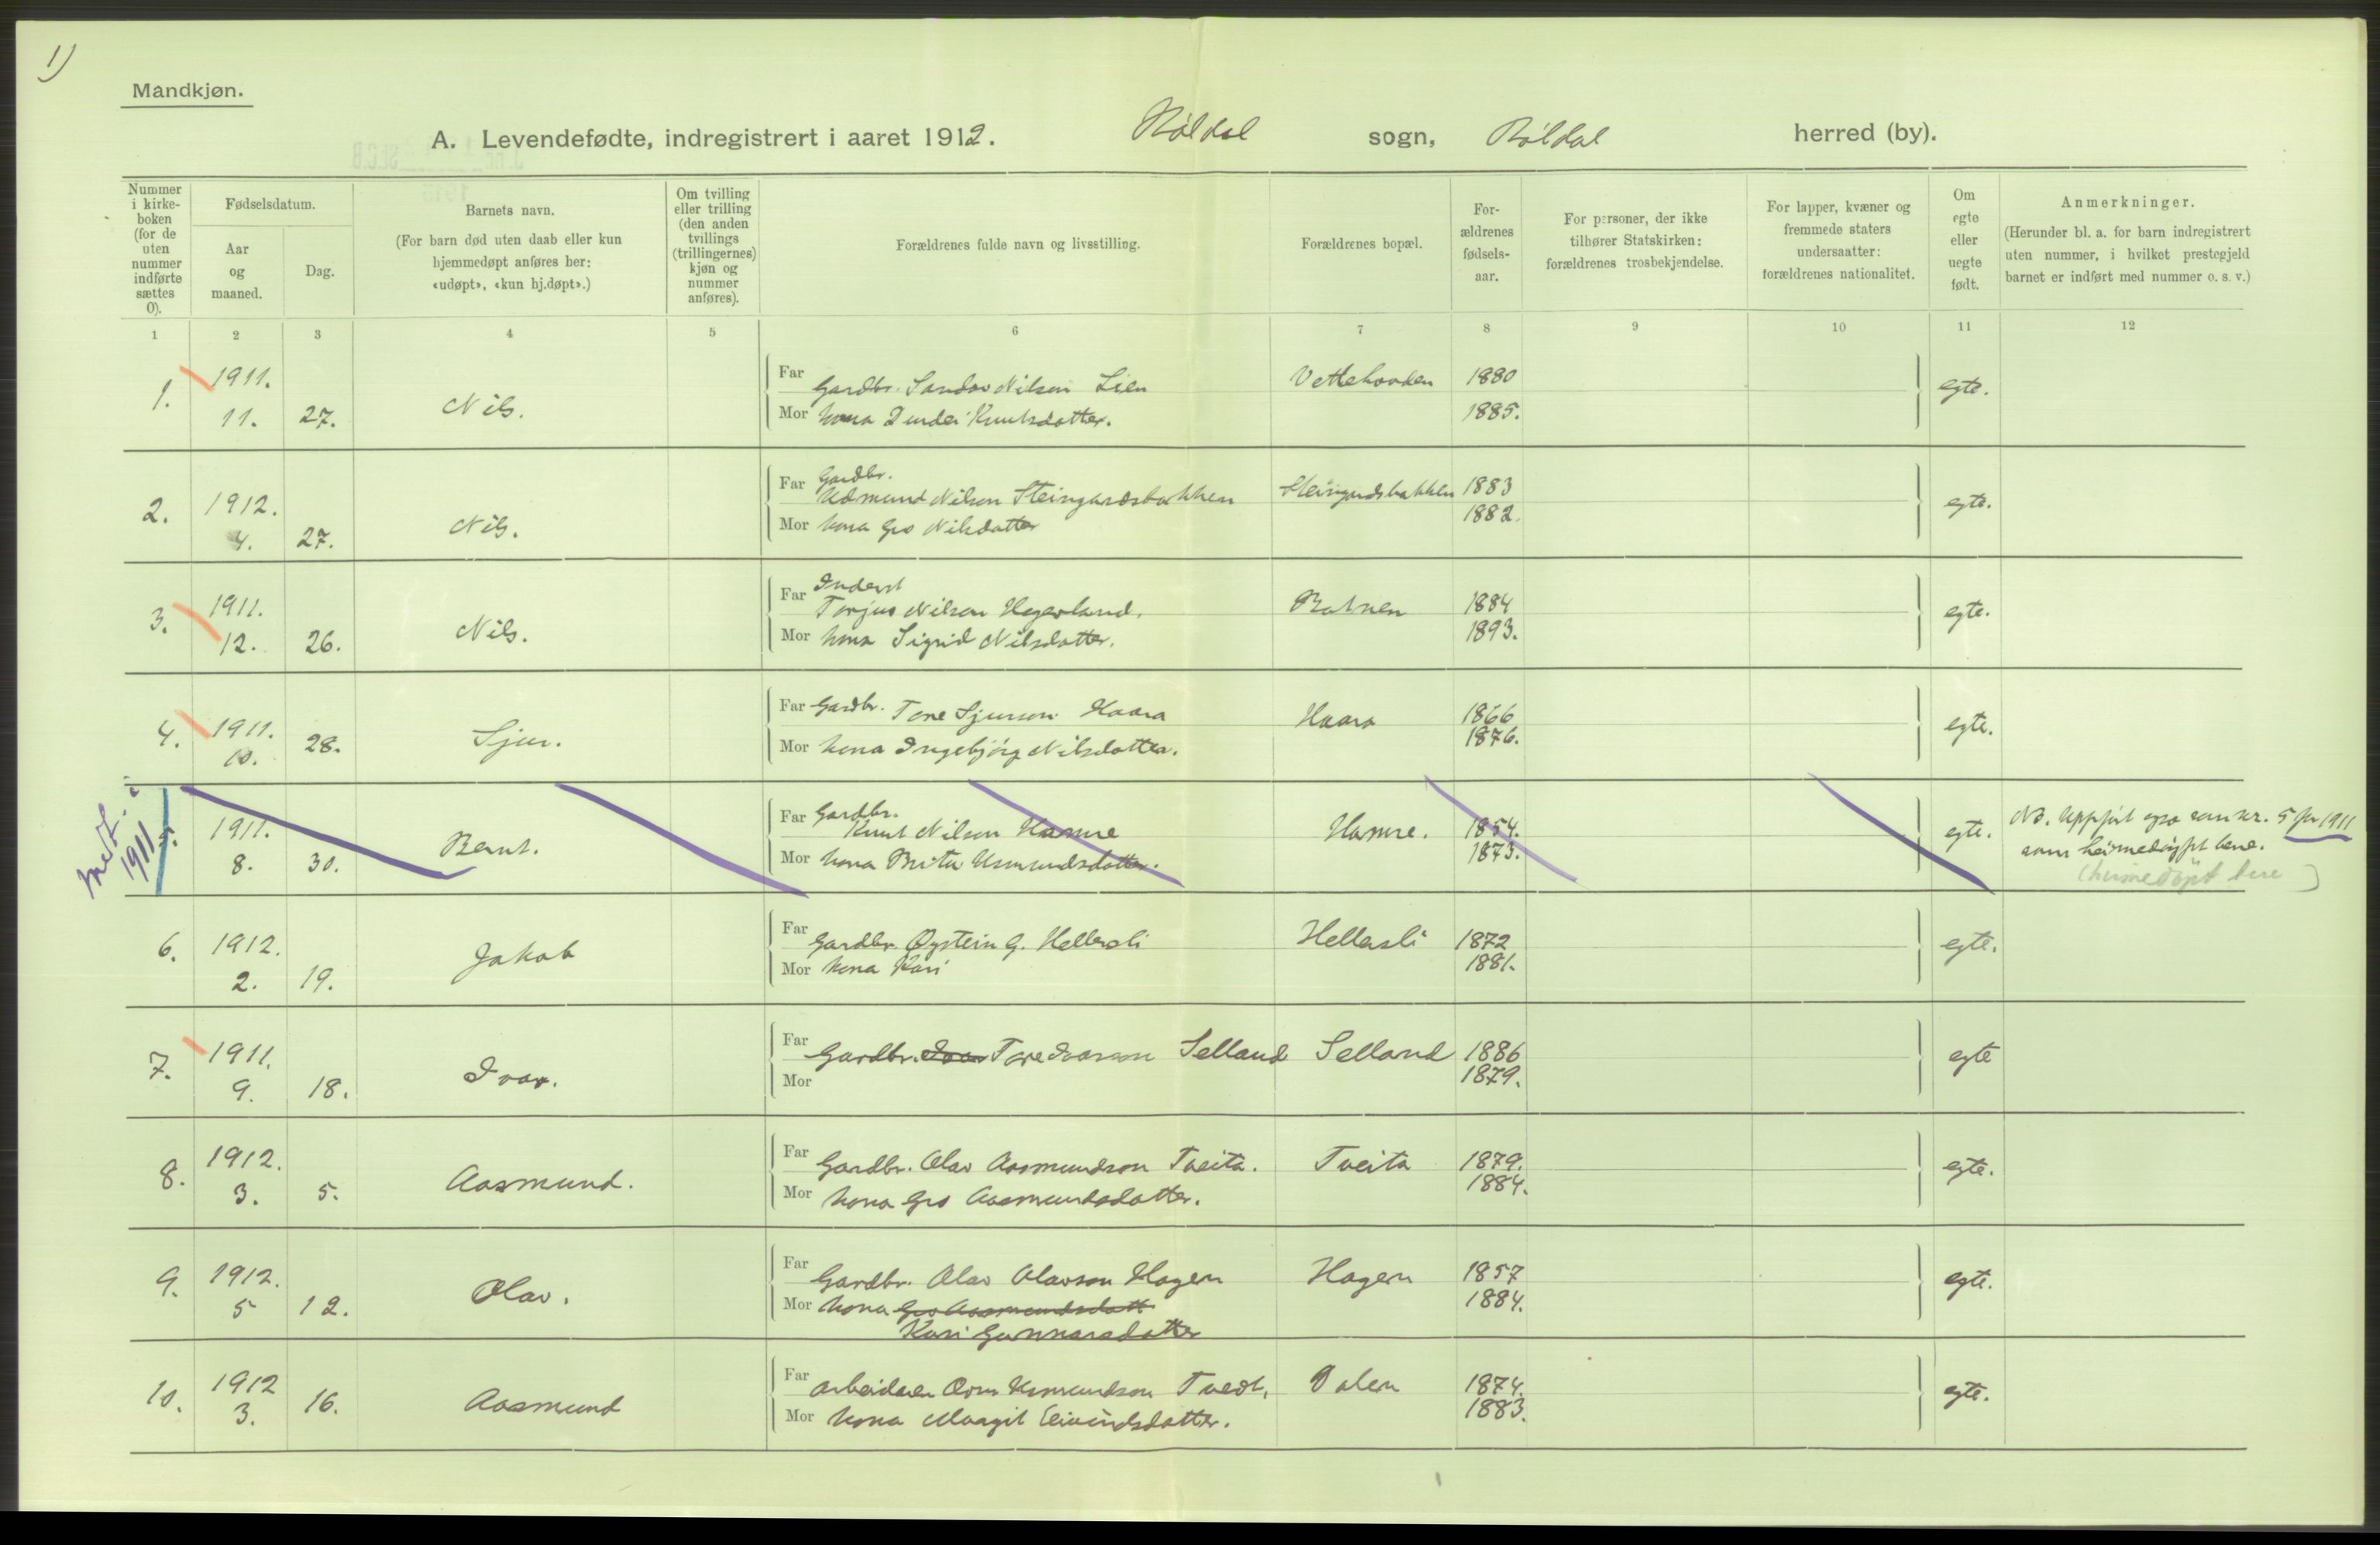 1)
Mandkjøn.
A. Levendefødte, indregistrert i aaret 1912. Röldal sogn, Röldal herred (by).
Nummer i kirke-boken (for de uten nummer indførte sættes 0).
Fødselsdatum.
Aar og maaned.
Dag.
Barnets navn.
(For barn død uten daab eller kun hjemmedøpt anføres her: «udøpt», «kun hj.døpt».)
Om tvilling eller trilling (den anden tvillings (trillingernes) kjøn og nummer anføres).
Forældrenes fulde navn og livsstilling.
Forældrenes bopæl.
For-ældrenes fødsels-aar.
For personer, der ikke tilhører Statskirken: forældrenes trosbekjendelse.
For lapper, kvæner og fremmede staters undersaatter: forældrenes nationalitet.
Om egte eller uegte født.
Anmerkninger.
(Herunder bl. a. for barn indregistrert uten nummer, i hvilket prestegjeld barnet er indført med nummer o. s. v.)
1 2 3 4 5 6 7 8 9 10 11 12
1. 1911. 11. 27. Nils.
Far Gardbr. Sandov Nilsen Lien Vettehovden 1880 egte.
Mor kona Knutsdotter. 1885.
2. 1912. 4. 27. Nils.
Far Gardbr. Asmund Nilsen Steingardsbakken Steingardsbakken 1883 egte.
Mor kona Gro Nilsdatter 1882.
3. 1911. 12. 26. Nils.
Far Inderst Torjus Nilsen Hegerland. Botnen 1884 egte.
Mor kona Sigrid Nilsdotter. 1893.
4. 1911. 10. 28. Sjur.
Far Gardbr. Tore Sjurson Haara Haara 1866 egte.
Mor kona Ingebjörg Nilsdotter. 1876.
medt. i 1911
5. 1911. 8. 30. Bernt.
Far Gardbr. Knut Nilson Hamre Hamre. 1854. egte. NB. Uppfört ogso som nr. 5 for 1911
Mor kona Brita Asmundsdotter. 1873. som heimedöypt bere.
(heimedöpt bere)
6. 1912. 2. 19. Jakob
Far Gardbr. Øystein G. Hellesli Hellesli 1872 egte.
Mor kona Kari 1881.
7. 1911. 9. 18. Ivar.
Far Gardbr. Ivar Tore Ivarson Selland Selland 1886 egte
Mor 1879.
8. 1912. 3. 5. Aasmund.
Far Gardbr. Olav Aasmundson Tveita. Tveita 1879. egte.
Mor kona Gro Aasmundsdotter. 1884.
9. 1912. 5 12. Olav.
Far Gardbr. Olav Olavson Hagen Hagen 1857 egte.
Mor kona Gro Aasmundsdott 1884.
Kari Gunnarsdotter
10. 1912 3. 16. Aasmund
Far arbeidaren Orm Asmundson Tvedt. Dalen 1874. egte.
Mor kona Maagit Eivindsdotter. 1883.